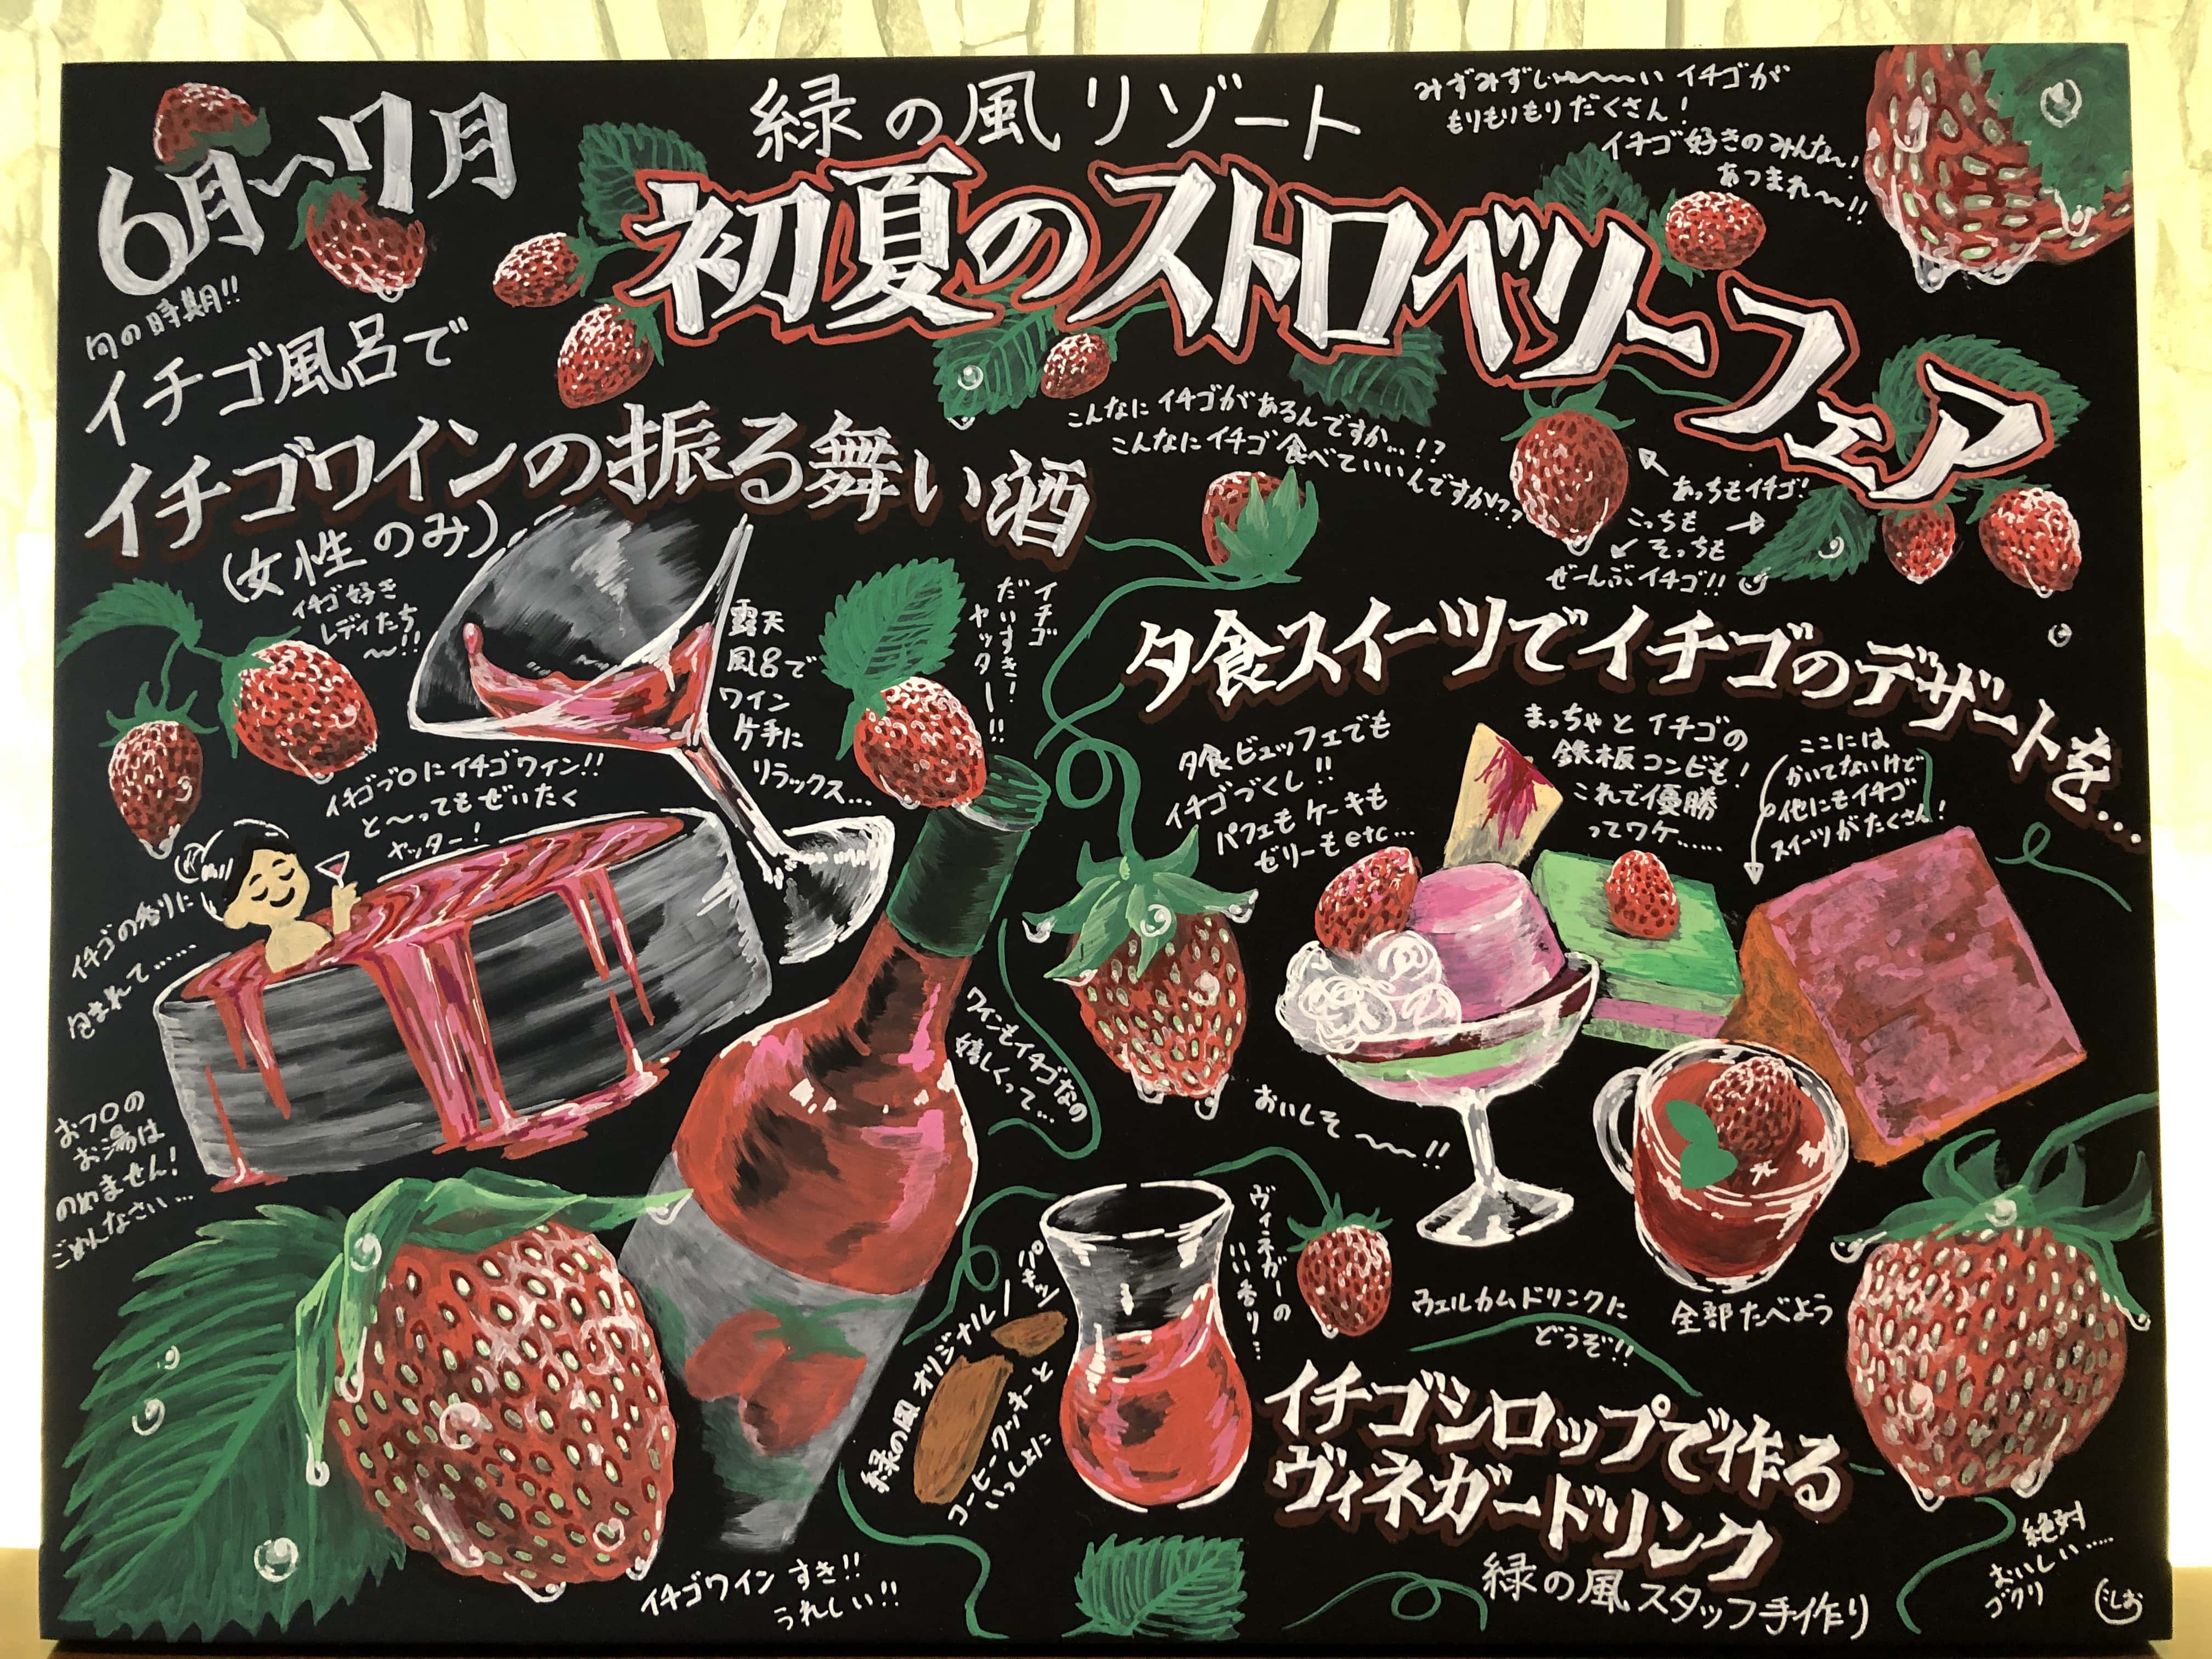 6月〜7月
旬の時期!!
緑の風リゾート
初夏のストロベリーフェア
みずみずしぃ〜〜い イチゴが
もりもりもりだくさん!
イチゴ好きのみんな〜!
あつまれ〜〜!!
イチゴ風呂で
イチゴワインの振る舞い酒
(女性のみ)
イチゴ好き
レディたち
〜!!
こんなにイチゴがあるんですか…!?
こんなにイチゴ食べていいんですか!??
あっちもイチゴ!
こっちも
そっちも
ぜーんぶイチゴ!!
露天
風呂で
ワイン
片手に
リラックス…
イチゴ
だいすき!
ヤッター!!
イチゴブロにイチゴワイン!!
と〜ってもぜいたく
ヤッター!
イチゴの香りに
包まれて……
おフロの
お湯は
のめません!
ごめんなさい…
ワインもイチゴなの
嬉しくって…
イチゴワインすき!!
うれしい!!
夕食スイーツでイチゴのデザートを…
夕食ビュッフェでも
イチゴづくし!!
パフェもケーキも
ゼリーもetc…
まっちゃとイチゴの
鉄板コンビも!
これで優勝
ってワケ……
ここには
かいてないけど
他にもイチゴ
スイーツがたくさん!
おいしそ〜〜!!
全部たべよう
ウェルカムドリンクに
どうぞ!!
ヴィネガーの
いい香り…
パキッ
緑の風オリジナル
コーヒークッキーと
いっしょに
イチゴシロップで作る
ヴィネガードリンク
緑の風スタッフ手作り
絶対
おいしい……
ゴクリ
しお